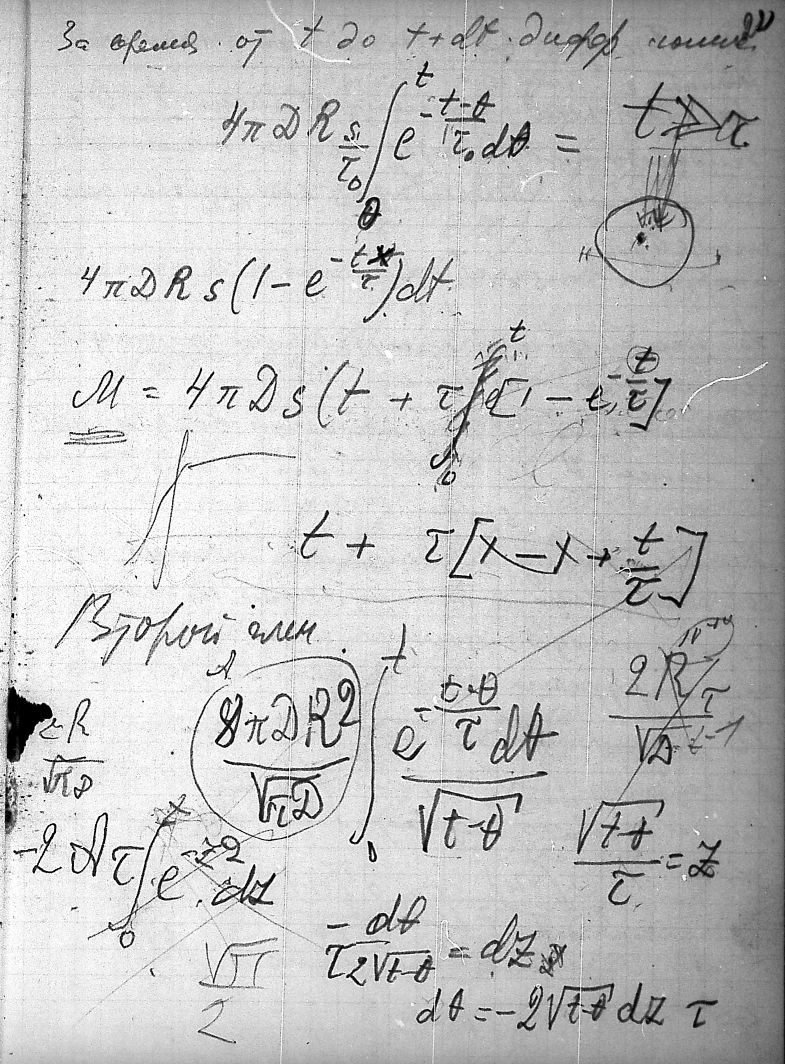 За время от t до t+dt дифф
4πDR s/τ₀ ∫₀ᵗ e^{-(t-θ)/τ₀} dθ =
t ≫ τ
4πDRs(1 - e^{-t/τ})dt
M = 4πDs(t + τ[1 - e^{-t/τ}]
t + τ[x - x + t/τ]
Второй член
8πDR²/√(πD) ∫₀ᵗ e^{-(t-θ)/τ} dθ/√(t-θ)
2R/√D
R/√(πD)
√(t-θ)/τ = z
-2Aτ ∫₀ e^{-z²} dz
√π/2
-dθ/(τ2√(t-θ)) = dz
dθ = -2√(t-θ) dz τ